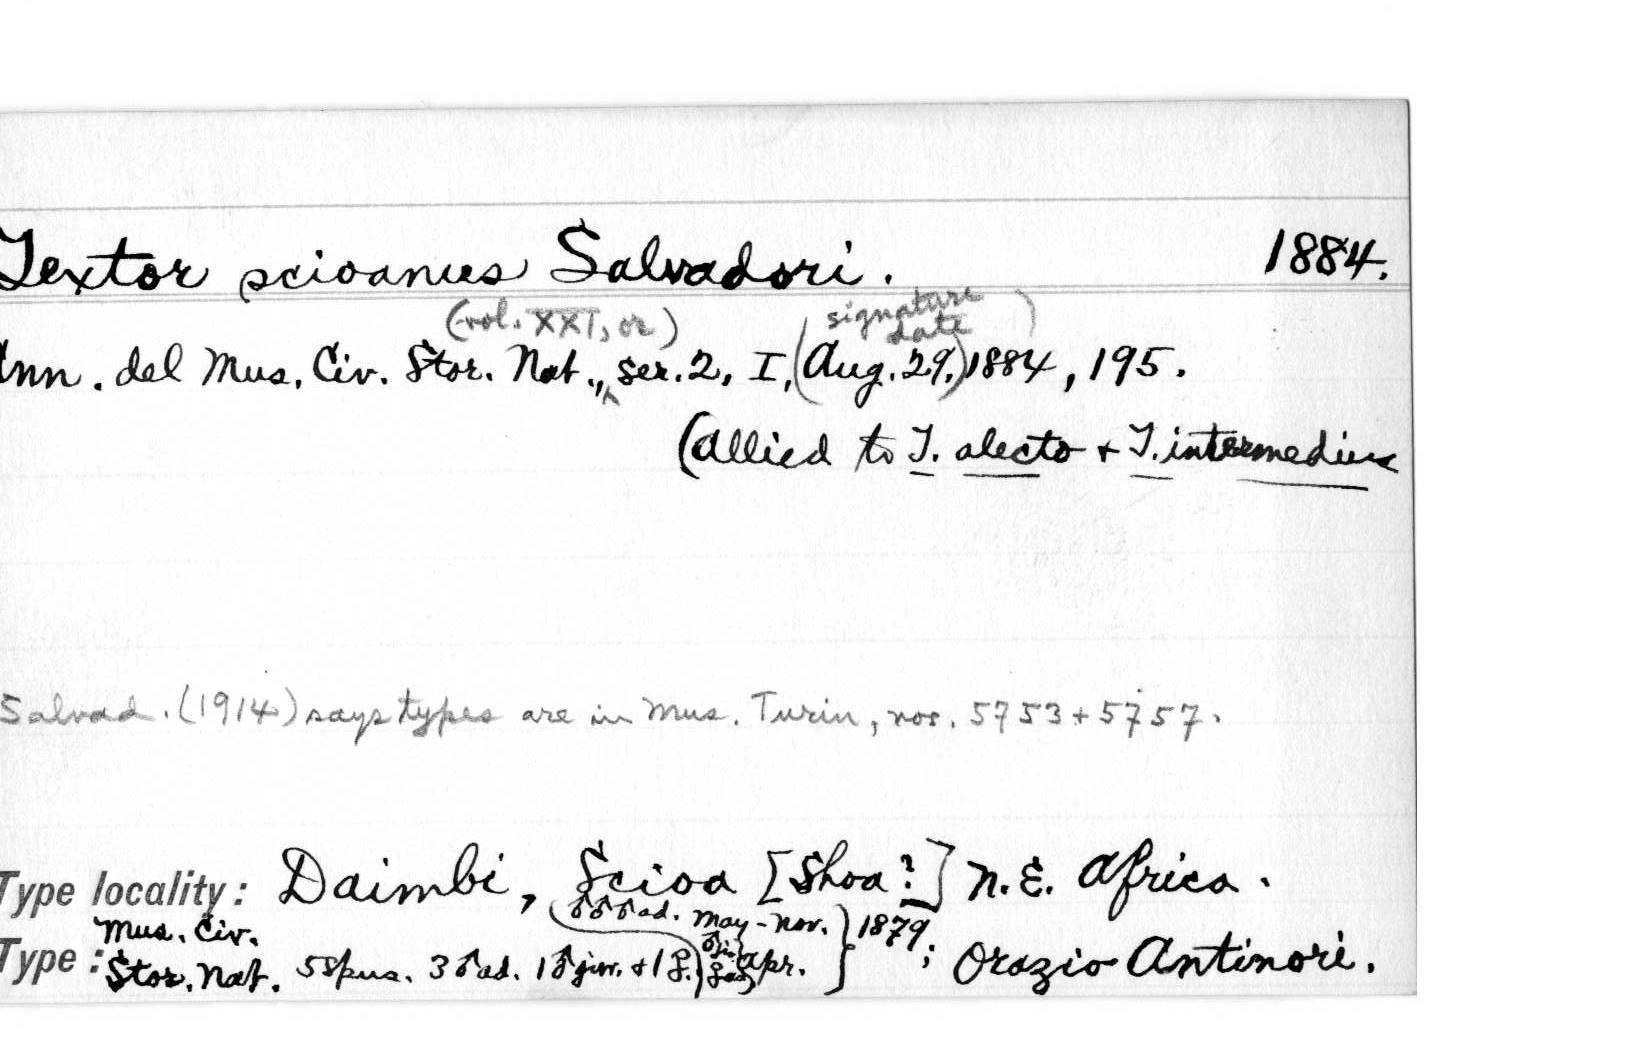 Textor scioanus Salvadori. 1884.
(vol. XXI, or) (signature date)
Ann. del Mus. Civ. Stor. Nat., ser. 2, I, (Aug. 29,) 1884, 195.
(Allied to T. alecto + T. intermedius
Salvad. (1914) says types are in Mus. Turin, nos. 5753 + 5757.
Type locality: Daimbi, Scioa [Shoa?] N.E. Africa.
♂♂♂ ad. May-Nov. } 1879;
Mus. Civ.
Type: Stor. Nat. 5 spms. 3 ♂ ad. 1 ♂ juv. + 1 ♀. Apr. Orazio Antinori.